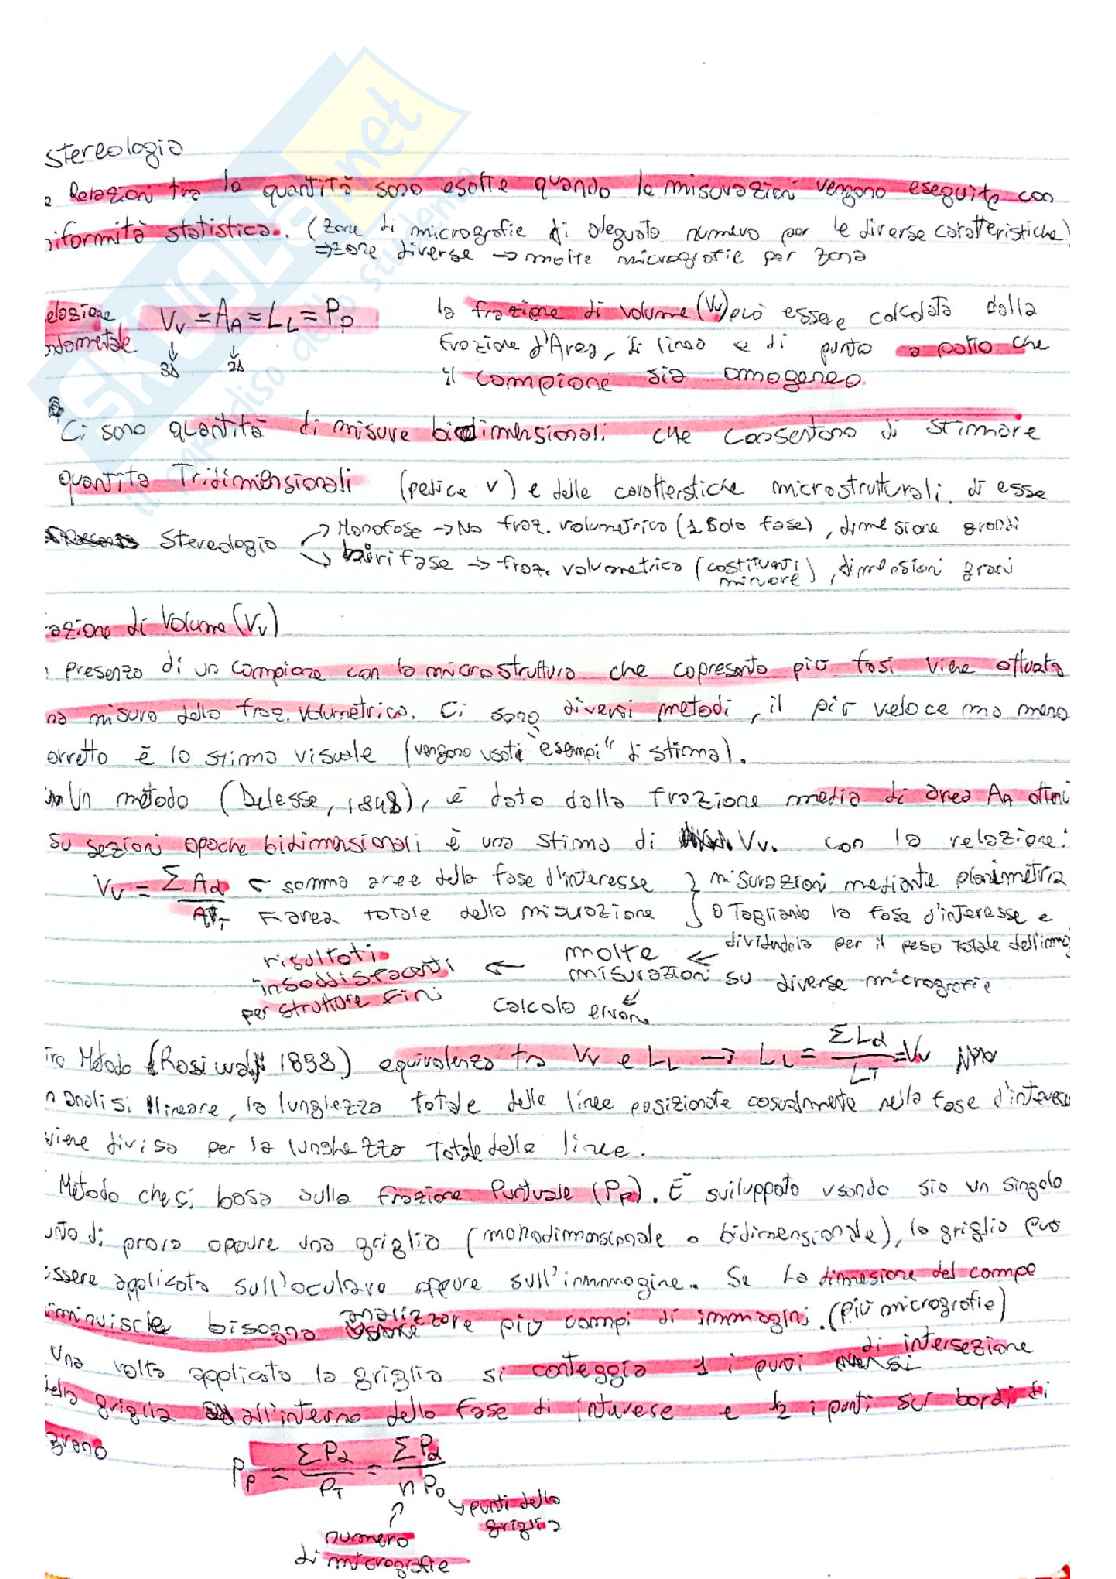 Stereologia
Relazioni tra la quantità sono esatte quando le misurazioni vengono eseguite con
iformità statistica. (zone di micrografie di adeguato numero per le diverse caratteristiche)
⇒ zone diverse → molte micrografie per zona
elazione
ndametale
Vv = AA = LL = PP
3D 2D
la frazione di volume (Vv) può essere calcolata dalla
frazione d'Area, di linea e di punto a patto che
il campione sia omogeneo.
Ci sono quantità di misure bidimensionali che consentono di stimare
quantità Tridimensionali (pedice v) e delle caratterstiche microstrutturali di esse
Stereologia → Monofase → No fraz. volumetrica (1 solo fase), dimesione grani
→ frase → fraz. volumetrica (costituenti minore), dimensioni grani
azione di Volume (Vv)
Presenza di un campione con la microstruttura che copresenta più fasi viene attuata
na misura dello fraz. volumetrica. Ci sono diversi metodi, il più veloce ma meno
orretto è la stima visuale (vengono usati "esempi" di stima).
Un metodo (Delesse, 1848), è dato dalla frazione media di area AA otteni
su sezioni opache bidimensionali è una stima di Vv. con la relazione:
Vv = ΣAα / AT ← somma aree della fase d'interesse } misurazioni mediante planimetria
← area totale della misurazione } o Tagliando la fase d'interesse e
dividendola per il peso totale dell'imma
risultati insoddisfacenti per strutture fini ← molte misurazioni su diverse micrografie
calcolo errore
tro Metodo (Rosiwal, 1898) equivalenza tra Vv e LL → LL = ΣLα / LT = Vv
n analisi lineare, la lunghezza totale delle linee posizionate casualmente nella fase d'interesse
viene diviso per la lunghezza Totale delle linee.
Metodo che si basa sulla frazione Puntuale (PP). È sviluppato usando sia un singolo
unto di prova oppure una griglia (monodimensionale o bidimensionale), la griglia può
essere applicata sull'oculare oppure sull'immmogine. Se la dimesione del campo
iminuisce bisogna analizzare più campi di immagini. (più micrografie)
Una volta applicata la griglia si conteggia 1 i punti di intersezione
della griglia all'interno della fase di interesse e ½ i punti sul bordi di
grano
PP = ΣPα / PT = ΣPα / n P0
→ punti della griglia
numero di micrografie